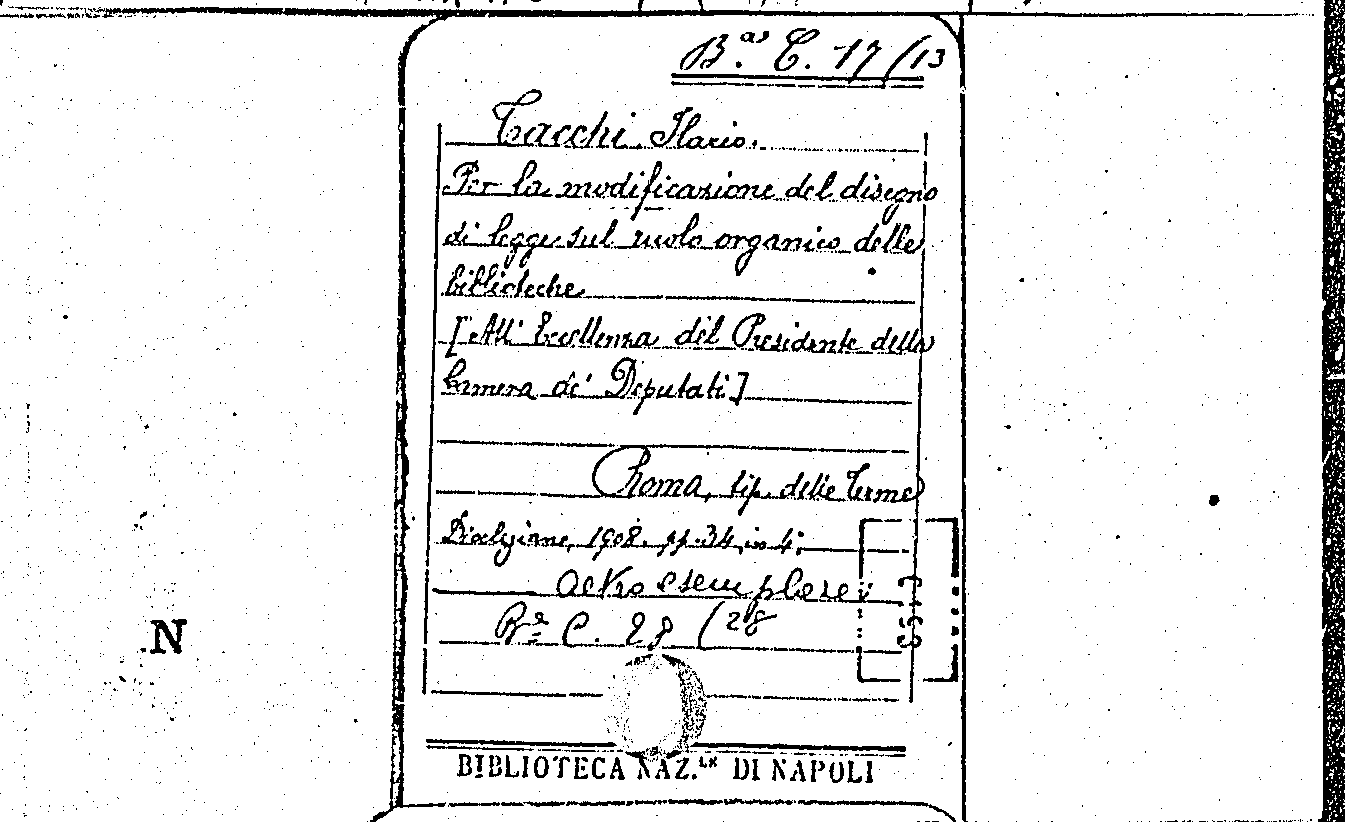 B.as C. 17/13
Tacchi Ilario.
Per la modificazione del disegno
di legge sul ruolo organico delle
biblioteche
[All' Eccellenza del Presidente della
Camera de' Deputati]
Roma, tip. delle Terme
Diocleziane, 1908. pp. 34 in 4°.
altro esemplare:
Ba C. 28 (28
N
BIBLIOTECA NAZ.LE DI NAPOLI